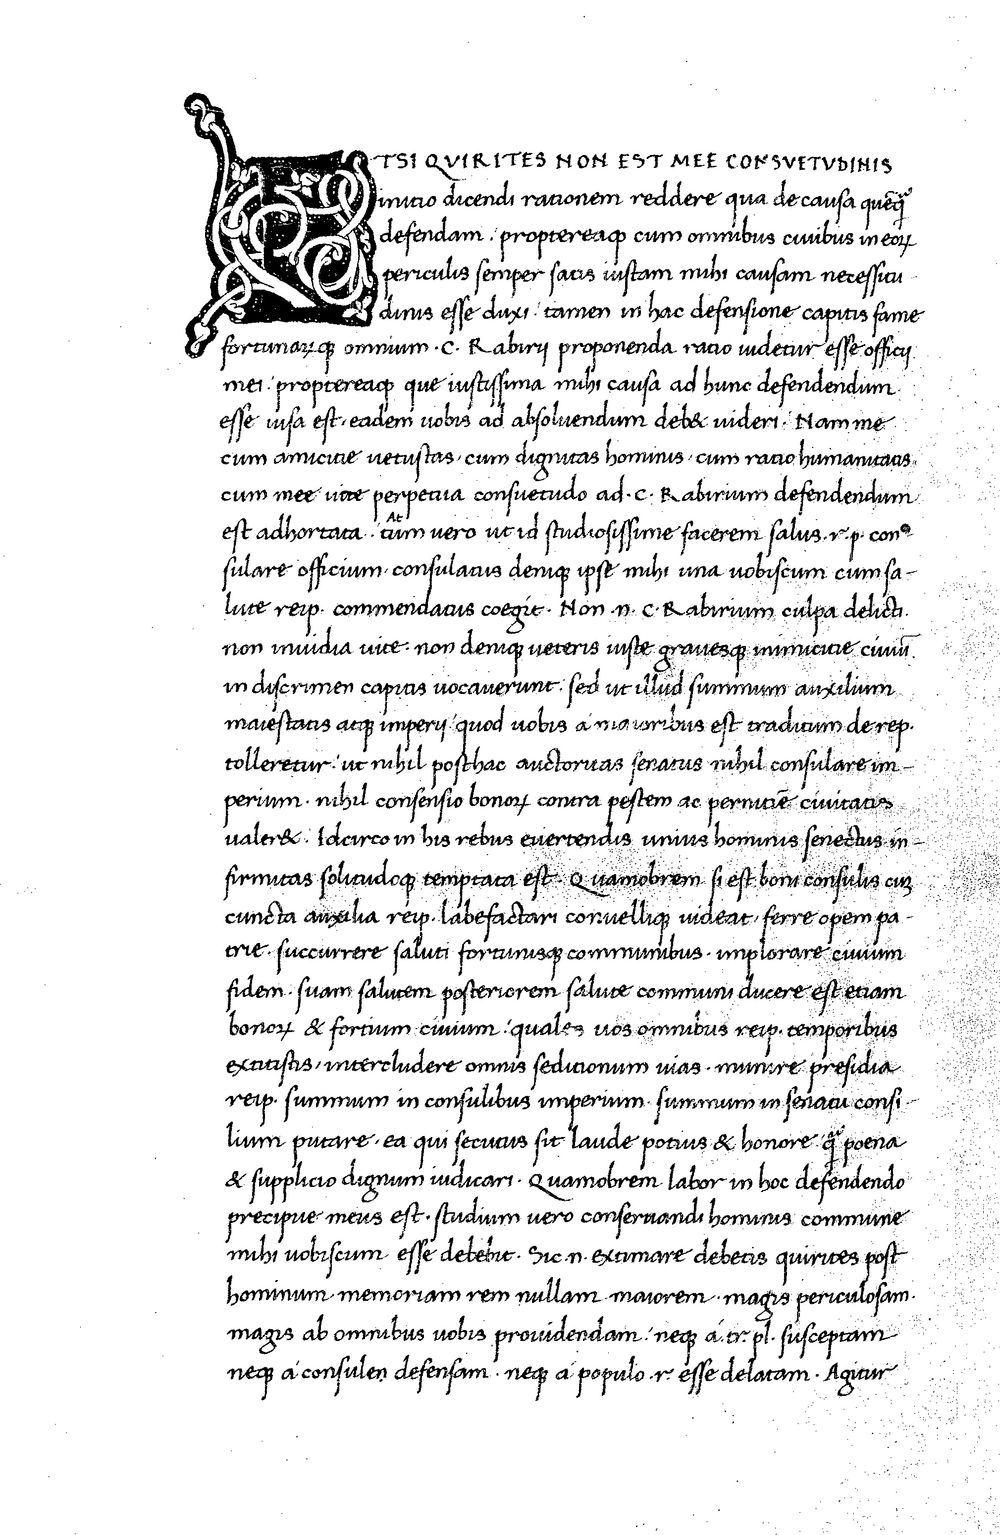 ETSI QVIRITES NON EST MEE CONSVETVDINIS
initio dicendi rationem reddere qua de causa quēq̄
defendam : propterea q̨ cum omnibus ciuibus in eoꝝ
periculis semper satis iustam mihi causam necessitu-
dinis esse duxi : tamen in hac defensione capitis fame
fortunarꝫ q̨ omnium · C · Rabirij proponenda ratio uidetur esse officij
mei : propterea q̨ que iustissima mihi causa ad hunc defendendum
esse uisa est · eadem uobis ad absoluendum deb& uideri · Nam me
cum amicitie uetustas · cum dignitas hominis · cum ratio humanitatis ·
cum mee uite perpetua consuetudo ad · C · Rabirium defendendum
est adhortata : At tum vero ut id studiosissime facerem salus · r · p · con
sulare officium · consulatus deniq̨ ipse mihi una uobiscum cum sa-
lute reip · commendatus coegit · Non · n · C · Rabirium culpa delicti ·
non inuidia uite · non deniq̨ ueteris iuste grauesq̨ inimicitie ciuiū
in discrimen capitis uocauerunt · sed ut illud summum auxilium
maiestatis atq̨ imperij : quod uobis a maioribus est traditum de rep ·
tolleretur : ut nihil posthac auctoritas senatus nihil consulare im-
perium · nihil consensio bonoꝝ contra pestem ac perniciē ciuitatis
ualer& · Idcirco in his rebus euertendis unius hominis senectus in-
firmitas solitudoq̨ temptata est · Quamobrem si est boni consulis cuꝫ
cuncta auxilia reip · labefactari conuelliq̨ uideat · ferre opem pa-
trie · succurrere saluti fortunisq̨ communibus · implorare ciuium
fidem · suam salutem posteriorem salute communi ducere est etiam
bonoꝝ & fortium ciuium : quales uos omnibus reip · temporibus
extitistis · intercludere omnis seditionum uias · munire presidia
reip · summum in consulibus imperium · summum in senatu consi-
lium putare · ea qui secutus sit laude potius & honore q̄ poena
& supplicio dignum iudicari · Quamobrem labor in hoc defendendo
precipue meus est · studium vero conseruandi hominis commune
mihi uobiscum esse debebit · Sic · n · extimare debetis quirites post
hominum memoriam rem nullam maiorem · magis periculosam ·
magis ab omnibus uobis prouidendam : neq̨ a · tr · pl · susceptam
neq̨ a consulen defensam · neq̨ a populo · r · esse delatam · Agitur